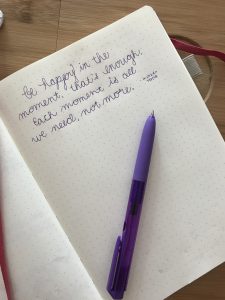 be happy in the
moment, that's enough.
Each moment is all
we need, not more.